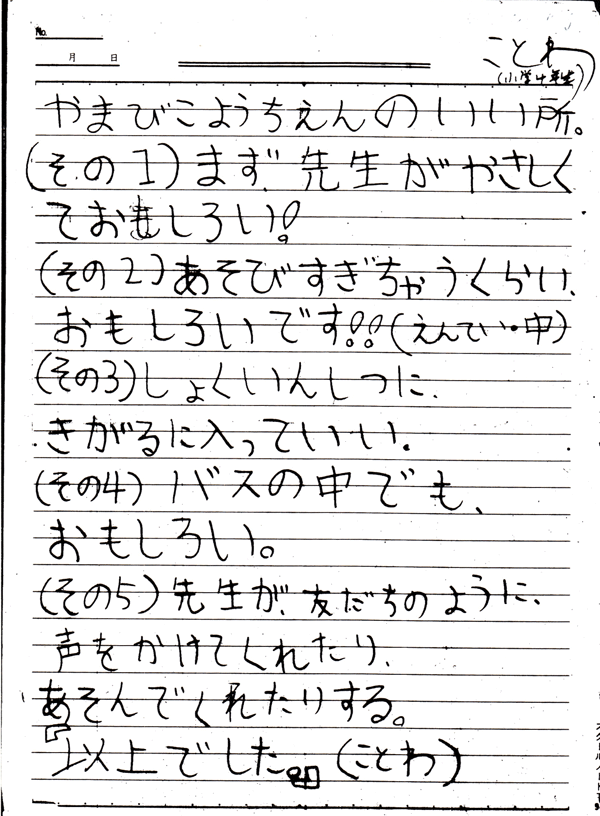 No.
月 日
ことわ
(小学4年生)
やまびこようちえんのいい所。
(その1)まず、先生がやさしく
ておもしろい!
(その2)あそびすぎちゃうくらい、
おもしろいです!!(えんてい・中)
(その3)しょくいんしつに、
きがるに入っていい。
(その4)バスの中でも、
おもしろい。
(その5)先生が、友だちのように、
声をかけてくれたり、
あそんでくれたりする。
『以上でした。』(ことわ)